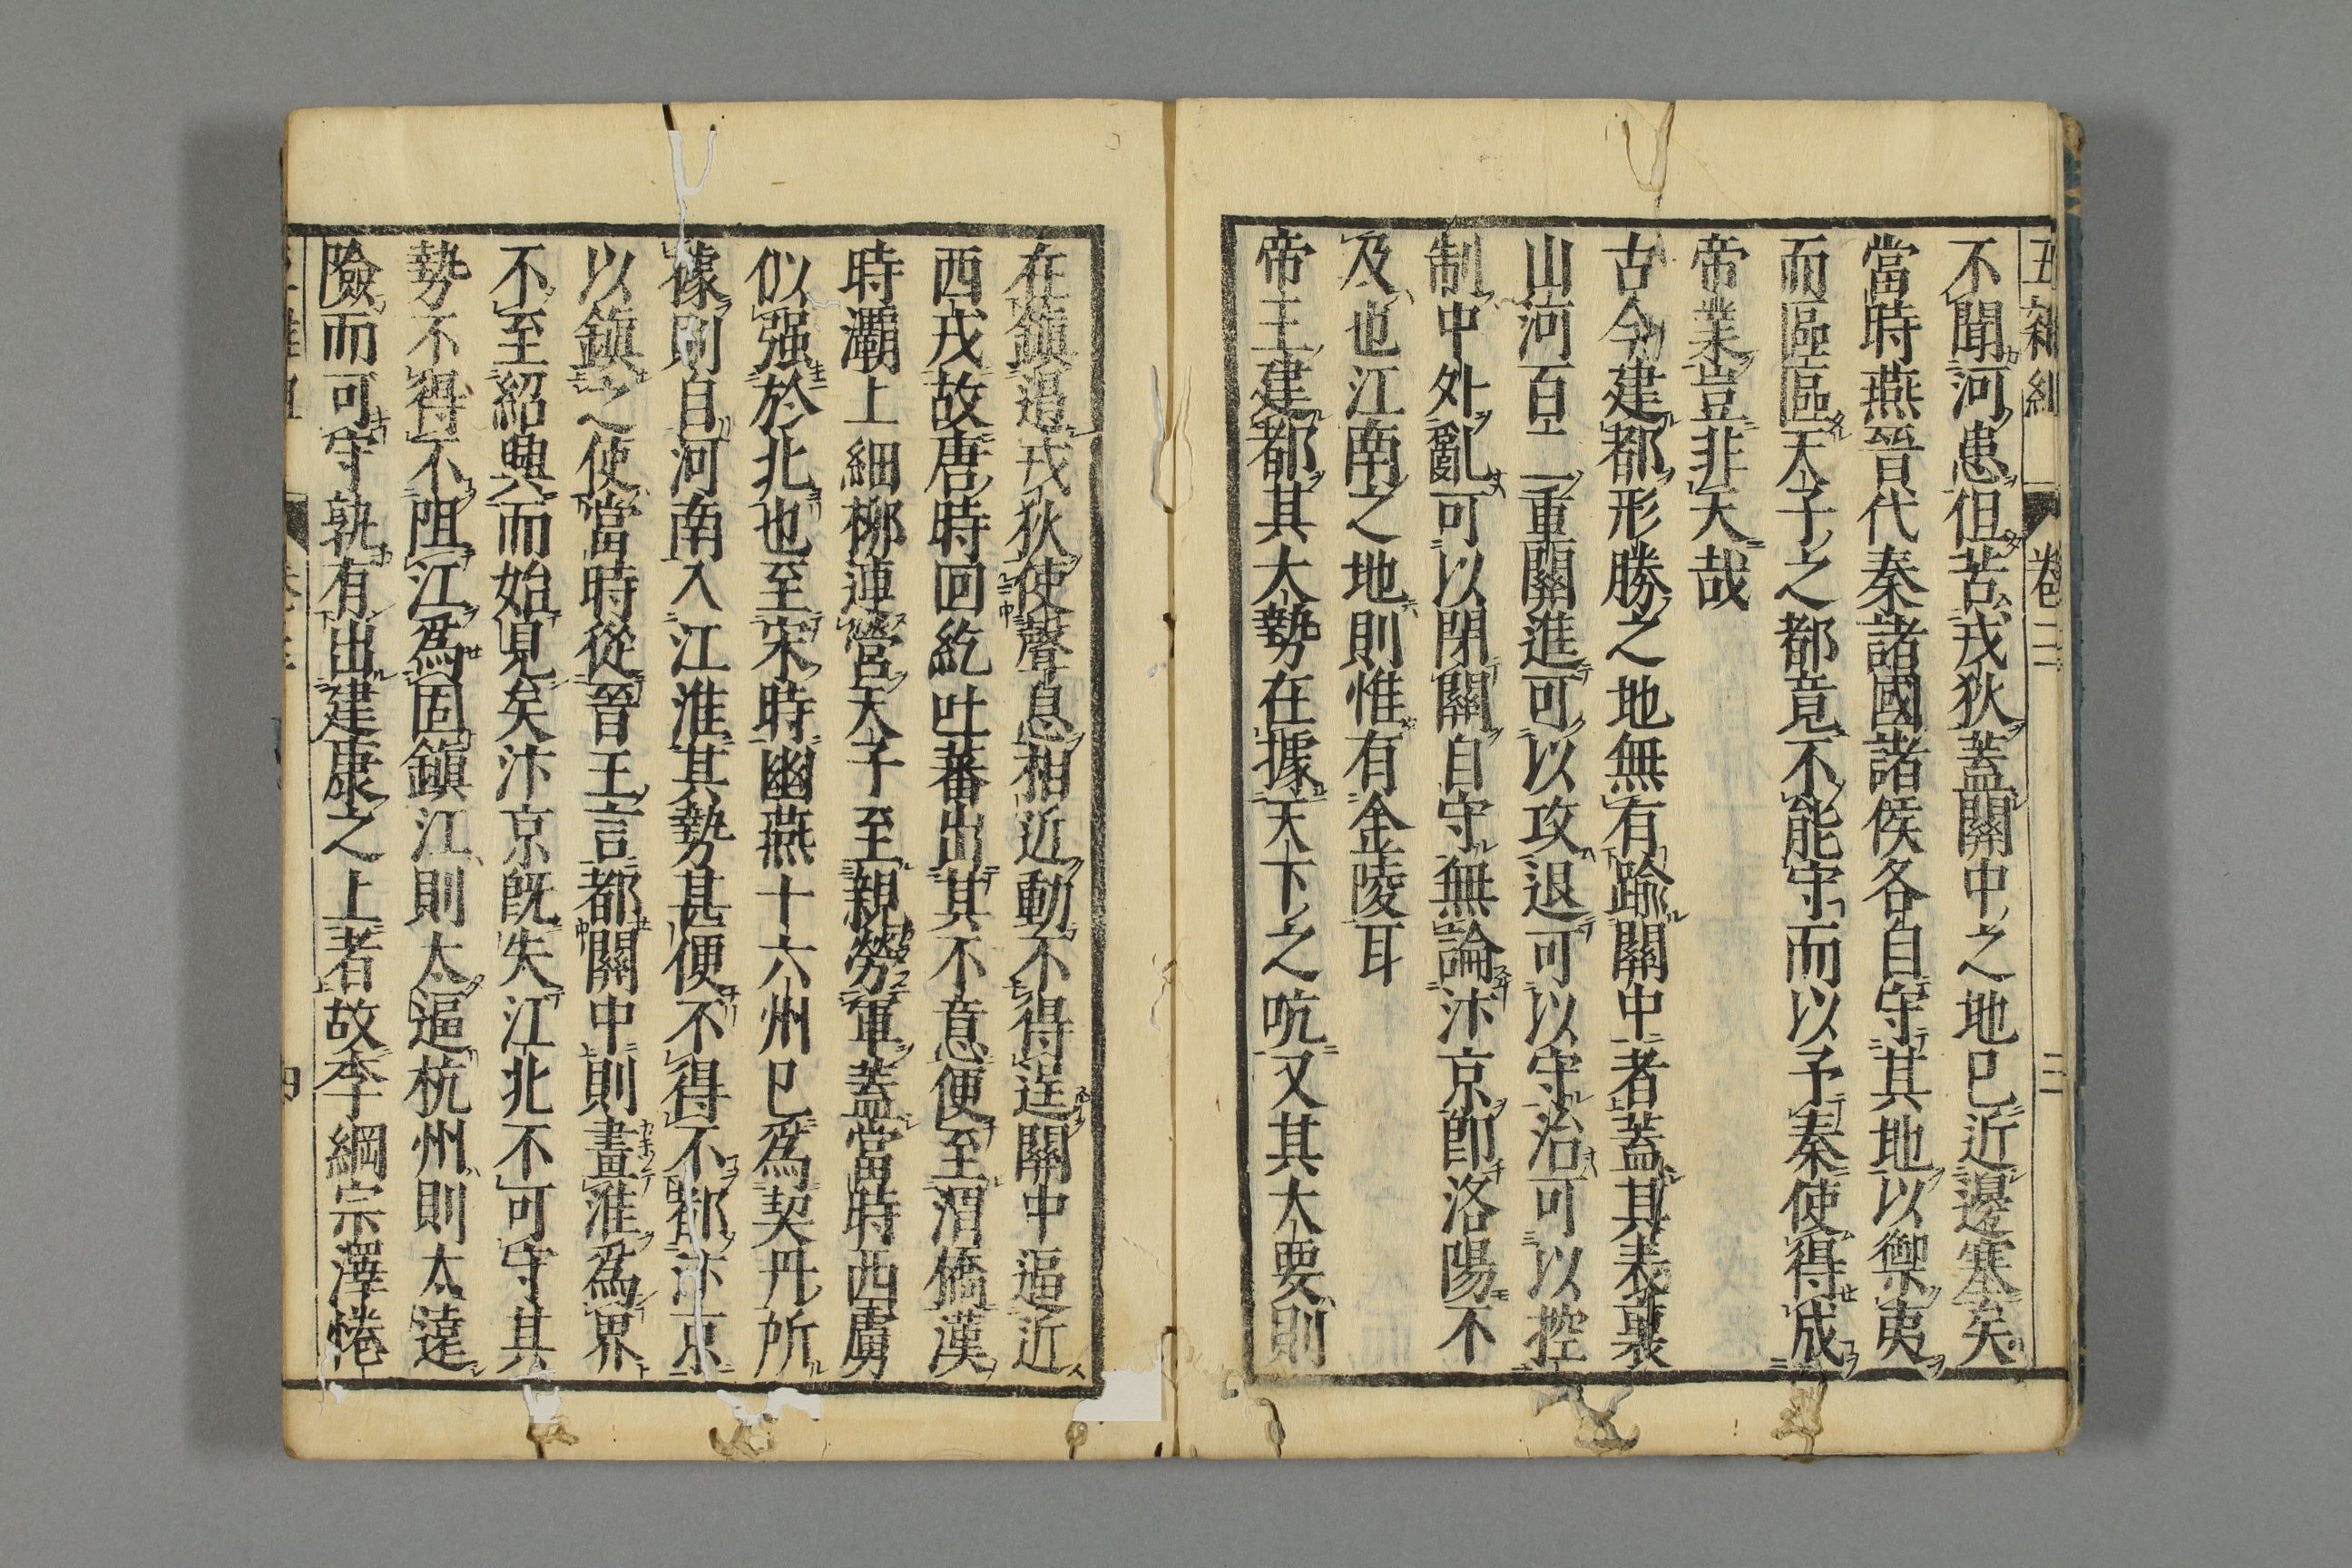 五雜組 卷三 三
不聞河患但苦戎狄蓋關中之地已近邊塞矣
當時燕晉代秦諸國諸侯各自守其地以禦夷
而區區天子之都竟不能守而以予秦使得成
帝業豈非天哉
古今建都形勝之地無有踰關中者蓋其表裏
山河百二重關進可以攻退可以守治可以控
制中外亂可以閉關自守無論汴京卽洛陽不
及也江南之地則惟有金陵耳
帝王建都其大勢在據天下之吭又其大要則
在鎮邊戎狄使聲息相近動不得逞關中逼近
西戎故唐時回紇吐蕃出其不意便至渭僑漢
時灞上細柳連營天子至親勞軍蓋當時西虜
似强於北也至宋時幽燕十六州已爲契丹所
據則自河南入江淮其勢甚便不得不都汴京
以鎮之使當時從晉王言都關中則畫淮爲界
不至紹興而始見矣汴京旣失江北不可守其
勢不得不阻江爲固鎮江則太逼杭州則太遠
險而可守孰有出建康之上者故李綱宗澤惓